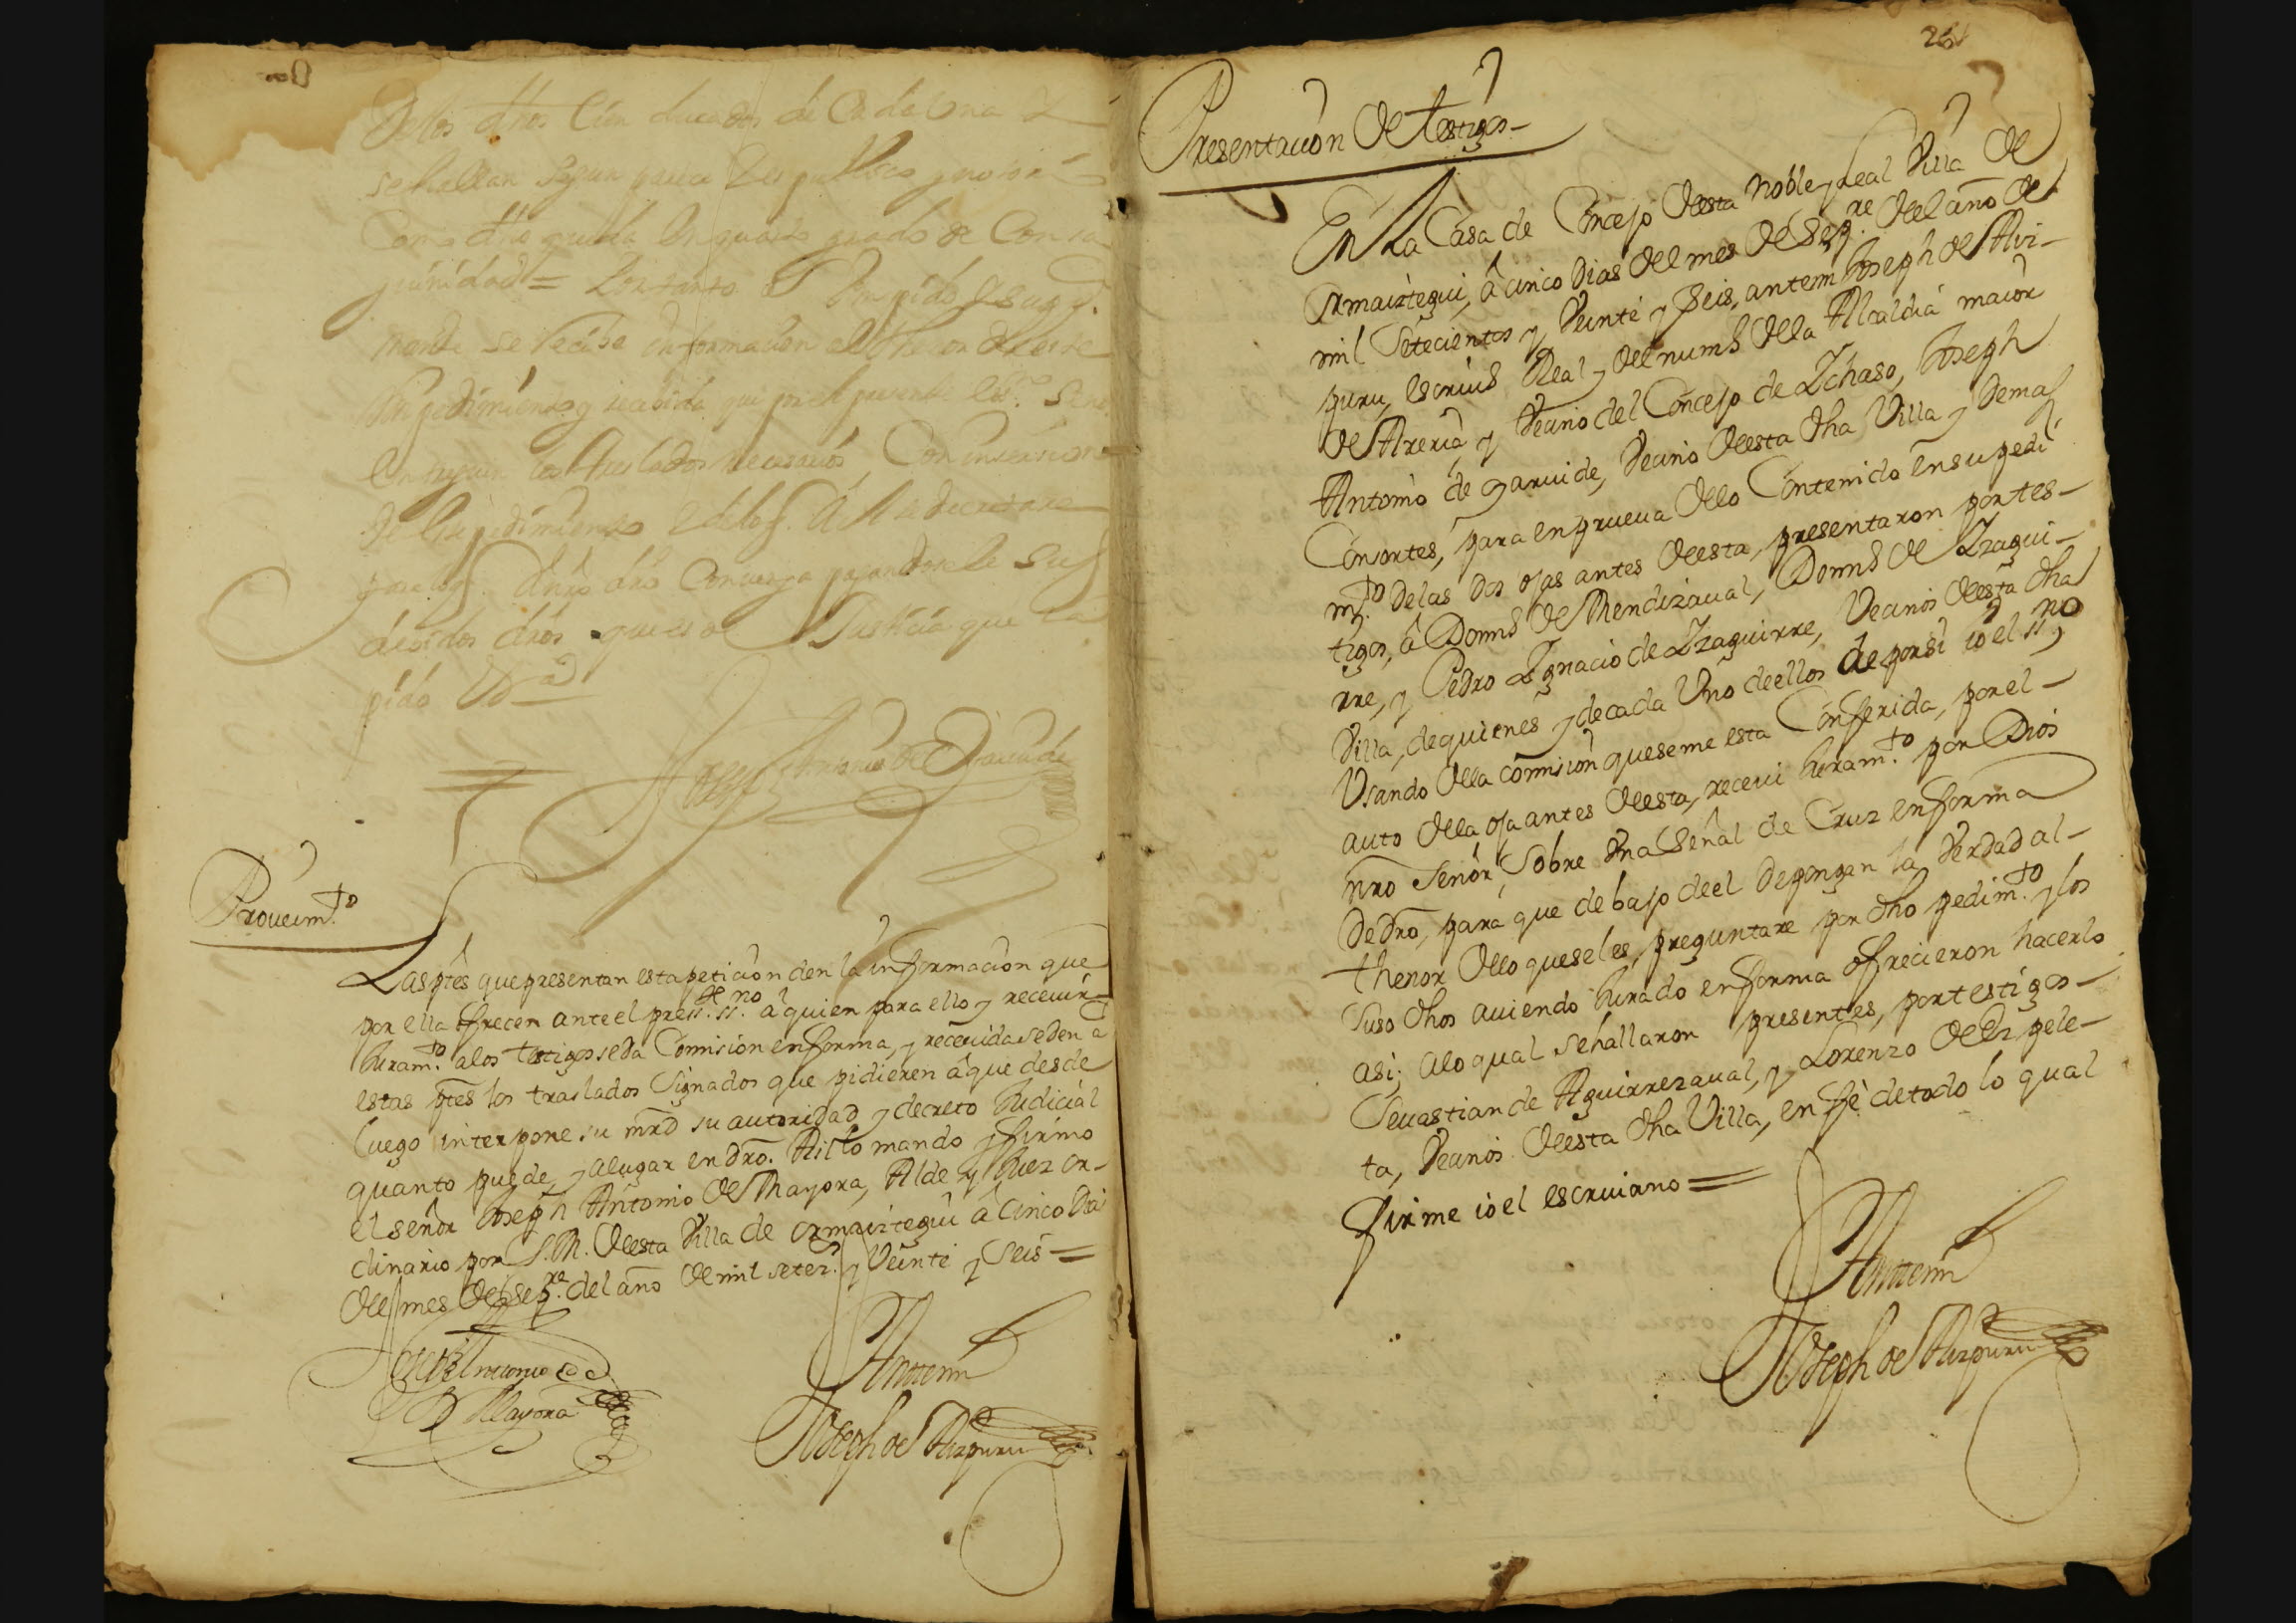 De los dhos Cien ducados de Cada Una Y
se hallan segun parece Ser publico y notorio
Como dho queda En quarto grado de Consan
guinidad = Por tanto A Vm pido y Supp.co
mande se reciba informacion al thenor de este
pedimiento y recibida que por el presente Ess.no Se me
Entreguen los traslados necesarios, Con insercion
de este pedimiento y de los
debidos dros que es Justicia que
pido V.a
Joseph Antonio de Garuide
Proueim.to
Las ptes que presentan esta peticion den la informacion que
por ella ofrecen ante el press.te ss.no â quien para ello y receuir
Juram.to a los testigos se da Comision en forma, y receuida se den a
estas ptes los traslados Signados que pidieren â que desde
luego interpone su mrd su autoridad y decreto Judicial
quanto puede, y a lugar en dro. Asi lo mando y firmo
el señor Joseph Antonio de Mayora, Alde y Juez or-
dinario por S.M. de esta Villa de Ormaiztegui â Cinco Dias
del mes de Sep.re del año de mil setez.s y Veinte y Seis =
Joseph Antonio de
Mayora
Antemi
Joseph de Aizpuru
261
Presentacion de testigos-
En La Casa de Concejo de esta noble y Leal Villa de
Ormaiztegui, â cinco Dias del mes de Sep.re del año de
mil Setecientos y Veinte y Seis, antemi Joseph de Aiz-
puru, escriuo Real y del numo de la Alcaldia maior
de Areria, y Vecino del Concejo de Ichaso, Joseph
Antonio de Garuide, Vecino de esta dha Villa y Demas
Consortes, para en prueua de lo Contenido en su pedi
m.to de las dos ojas antes de esta, presentaron por tes-
tigos, â Domo de Mendizaual, Domo de Izagui-
rre, y Pedro Ignacio de Izaguirre, Vecinos de esta dha
Villa, de quienes y de cada Uno de ellos de por si io el ss.no
Usando de la comision que se me esta Conferida, por el-
auto de la oja antes de esta, receui Juram.to por Dios
nro Señor, Sobre Una Señal de Cruz en forma
de dro, para que debajo de el Depongan la Verdad al-
thenor de lo que se les, preguntare por dho pedim.to y los
Suso dhos auiendo Jurado en forma ofrecieron hacerlo
asi; a lo qual se hallaron presentes, por testigos-
Seuastian de Aguirrezaual, y Lorenzo de Ezpele-
ta, Vecinos de esta dha Villa, en fè de todo lo qual
firme io el escriuano =
Antemi
Joseph de Aizpuru